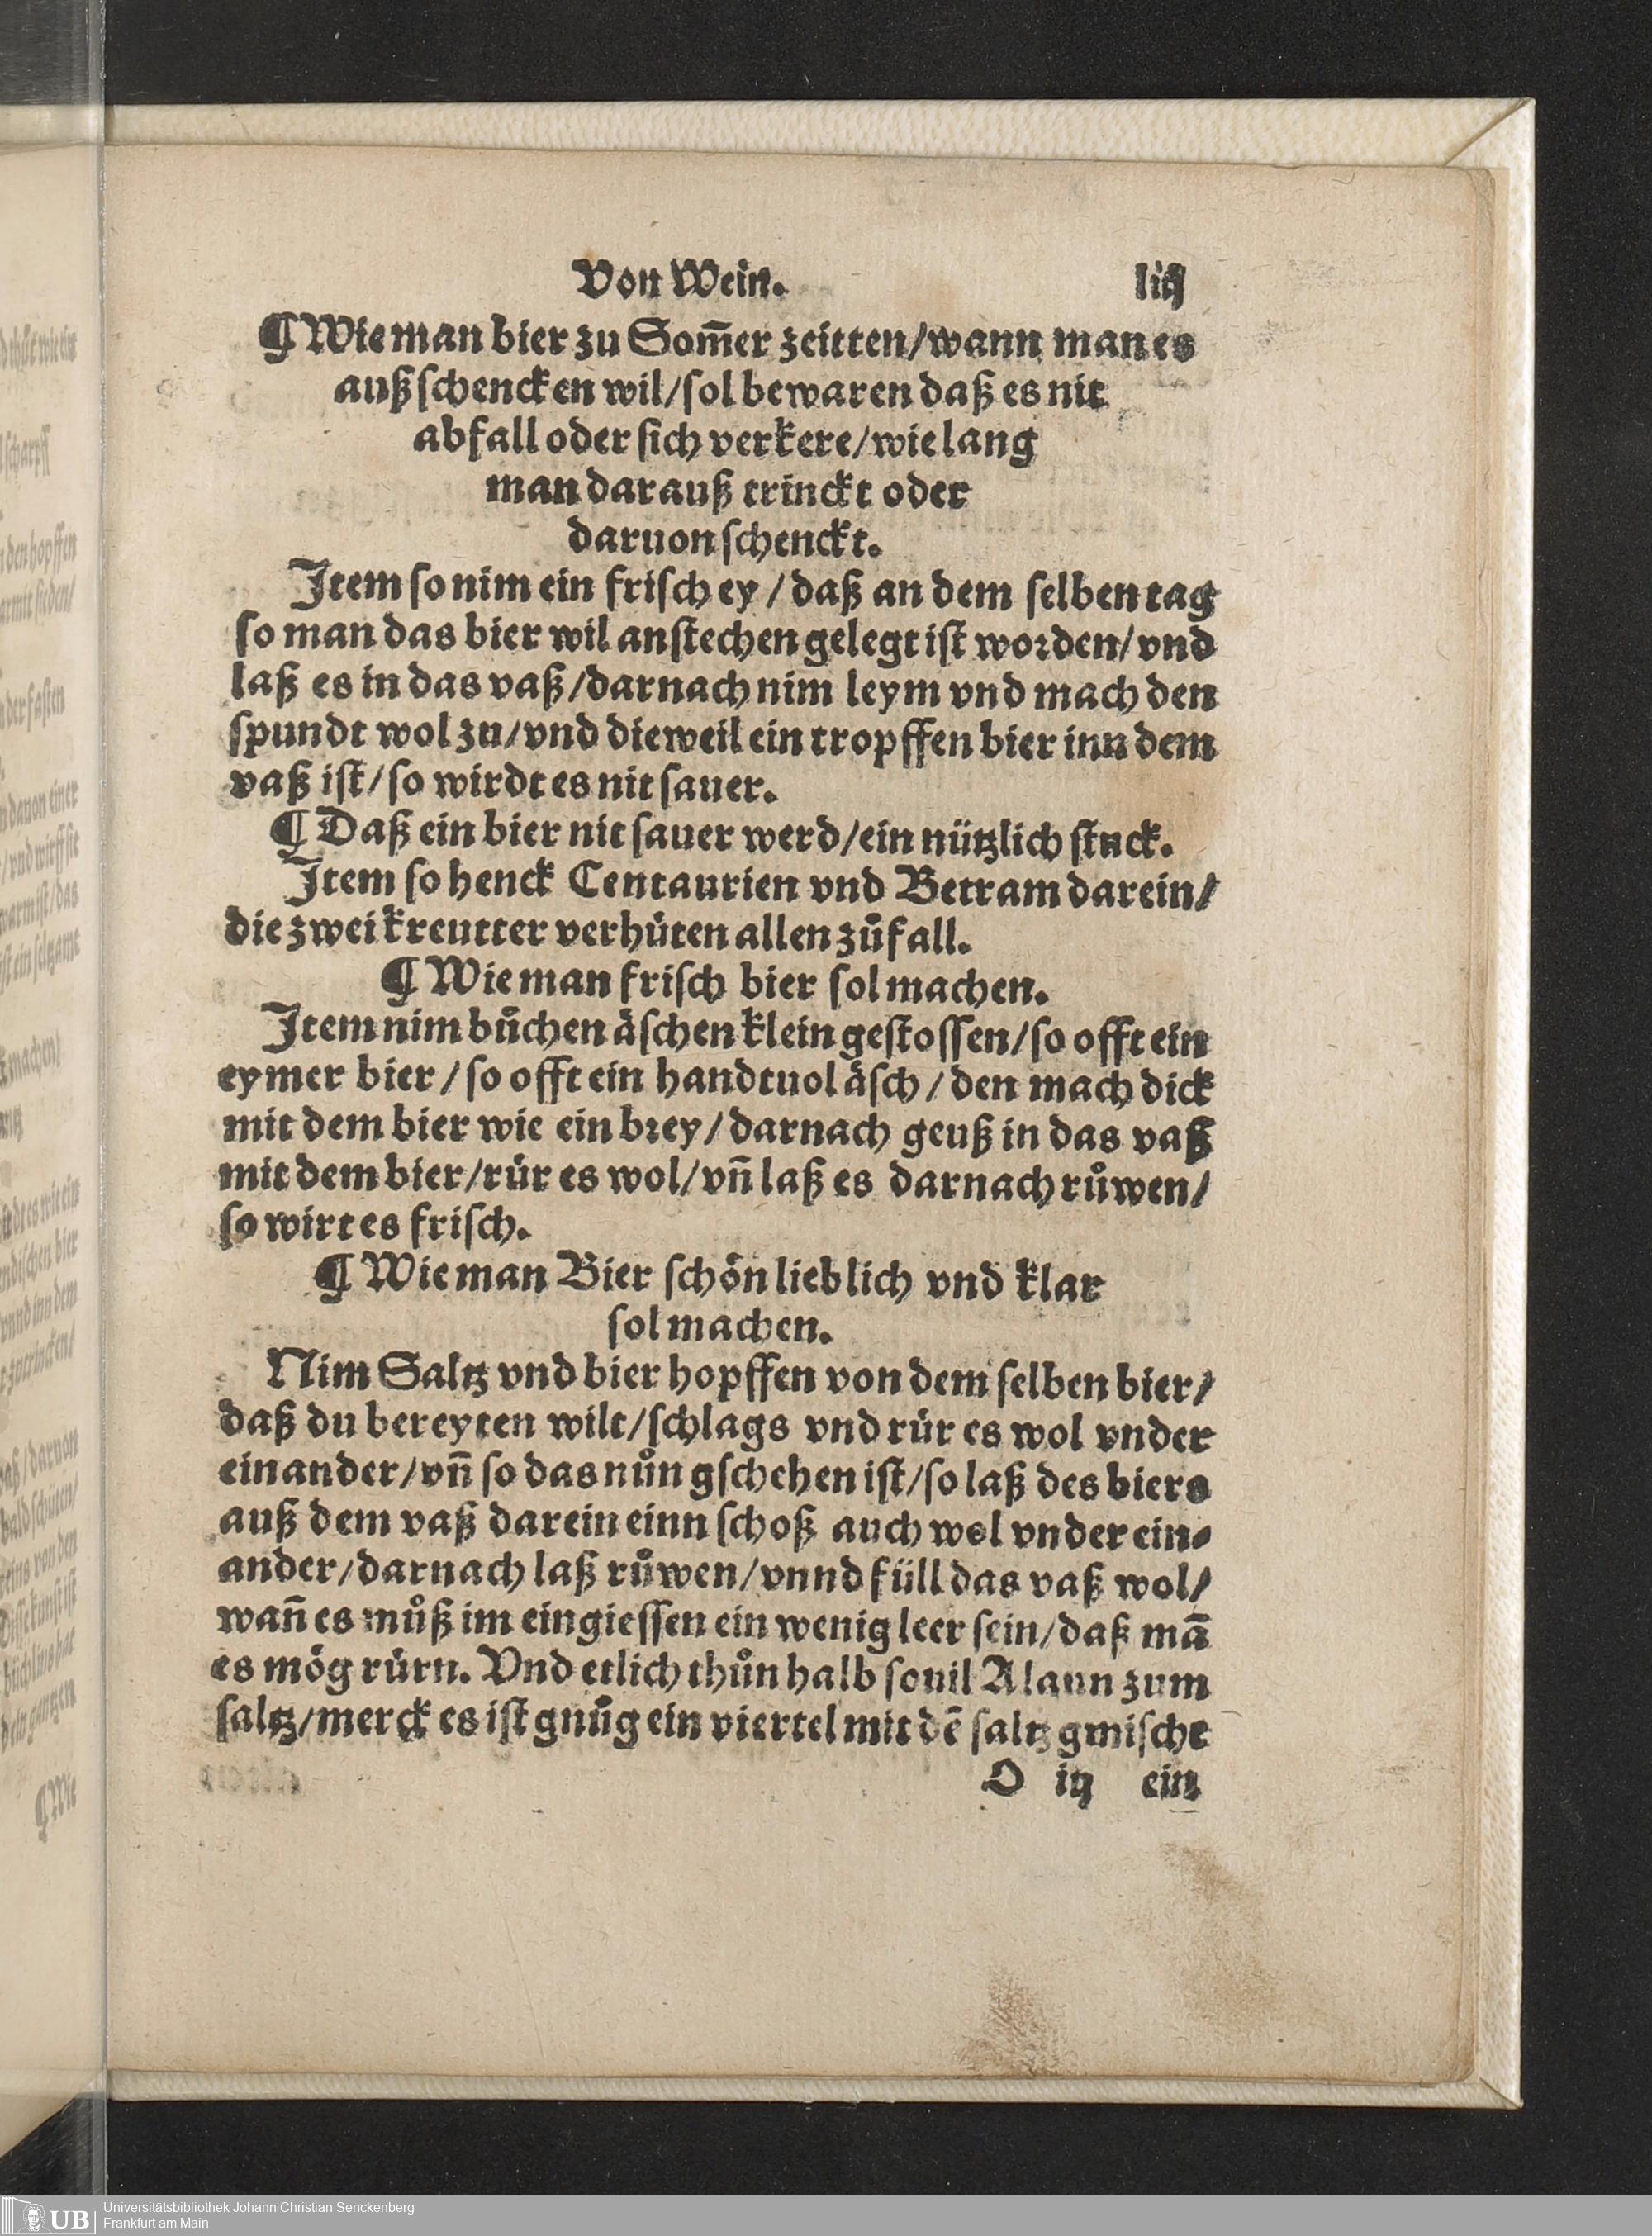 Von Wein.
¶ Wie man bier zu Som̃er zeitten/wann man es
außschencken wil/sol bewaren daß es nit
abfall oder sich verkere/wie lang
man darauß trinckt oder
daruon schenckt.
Item so nim ein frisch ey/daß an dem selben tag
so man das bier wil anstechen gelegt ist worden/vnd
laß es in das vaß/darnach nim leym vnd mach den
spundt wol zu/vnd dieweil ein tropffen bier inn dem
vaß ist/so wirdt es nit sauer.
¶ Daß ein bier nit sauer werd/ein nützlich stuck.
Item so henck Centaurien vnd Betram darein/
die zwei kreutter verhüten allen zůfall.
¶ Wie man frisch bier sol machen.
Item nim bůchen äschen klein gestossen/so offt ein
eymer bier/so offt ein handtuol äsch/den mach dick
mit dem bier wie ein brey/darnach geuß in das vaß
mit dem bier/rür es wol/vñ laß es darnach růwen/
so wirt es frisch.
¶ Wie man Bier schön lieblich vnd klar
sol machen.
Nim Saltz vnd bier hopffen von dem selben bier/
daß du bereyten wilt/schlags vnd rür es wol vnder
einander/vñ so das nůn gschehen ist/so laß des biers
auß dem vaß darein einn schoß auch wol vnder ein-
ander/darnach laß růwen/vnnd füll das vaß wol/
wañ es můß im eingiessen ein wenig leer sein/daß mã
es mög rürn. Vnd etlich thůn halb souil Alaun zum
saltz/merck es ist gnůg ein viertel mit dẽ saltz gmischt
O iij ein
¶ Wie
Universitätsbibliothek Johann Christian Senckenberg
Frankfurt am Main
UB